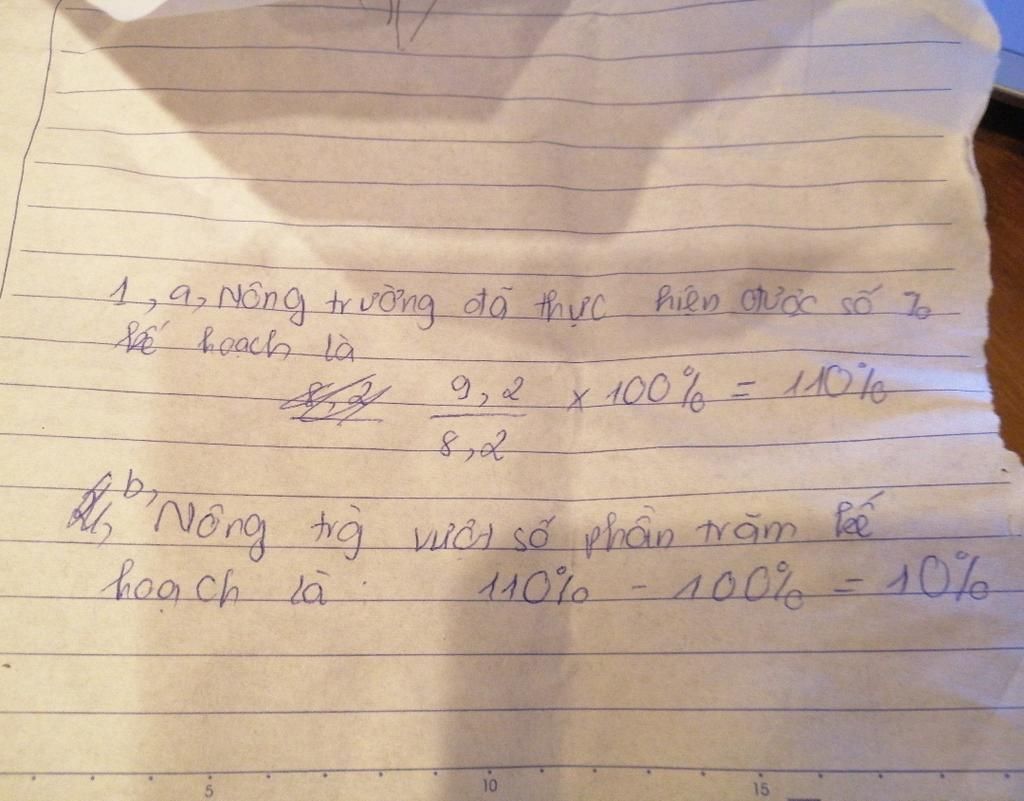 1, a, Nông trường đã thực hiện được số %
kế hoạch là
8,2 9,2 / 8,2 x 100% = 110%
b, Nông trg vượt số phần trăm kế
hoạch là : 110% - 100% = 10%
5 10 15